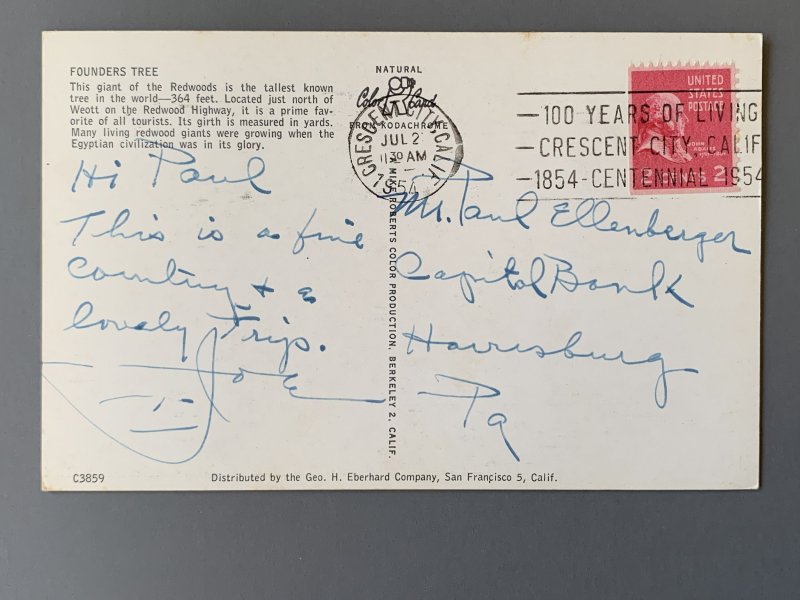 FOUNDERS TREE
This giant of the Redwoods is the tallest known
tree in the world—364 feet. Located just north of
Weott on the Redwood Highway, it is a prime fav-
orite of all tourists. Its girth is measured in yards.
Many living redwood giants were growing when the
Egyptian civilization was in its glory.
Hi Paul
This is a fine
Country & a
lovely Trip.
Joe
NATURAL
Color Cards
FROM KODACHROME
CRESCENT CITY, CALIF.
JUL 2
11 30 AM
1954
MIKE ROBERTS COLOR PRODUCTION, BERKELEY 2, CALIF.
UNITED
STATES
POSTAGE
JOHN
ADAMS
2
100 YEARS OF LIVING
CRESCENT CITY, CALIF
1854-CENTENNIAL 1954
Mr. Paul Ellenberger
Capitol Bank
Harrisburg
Pa
C3859
Distributed by the Geo. H. Eberhard Company, San Francisco 5, Calif.